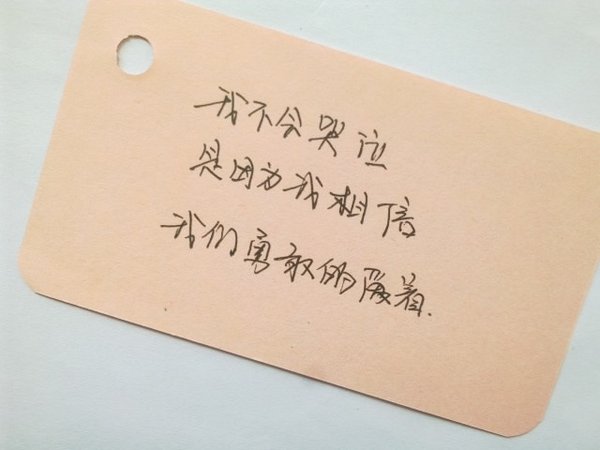 我不会哭泣
是因为我相信
我们勇敢的爱着.